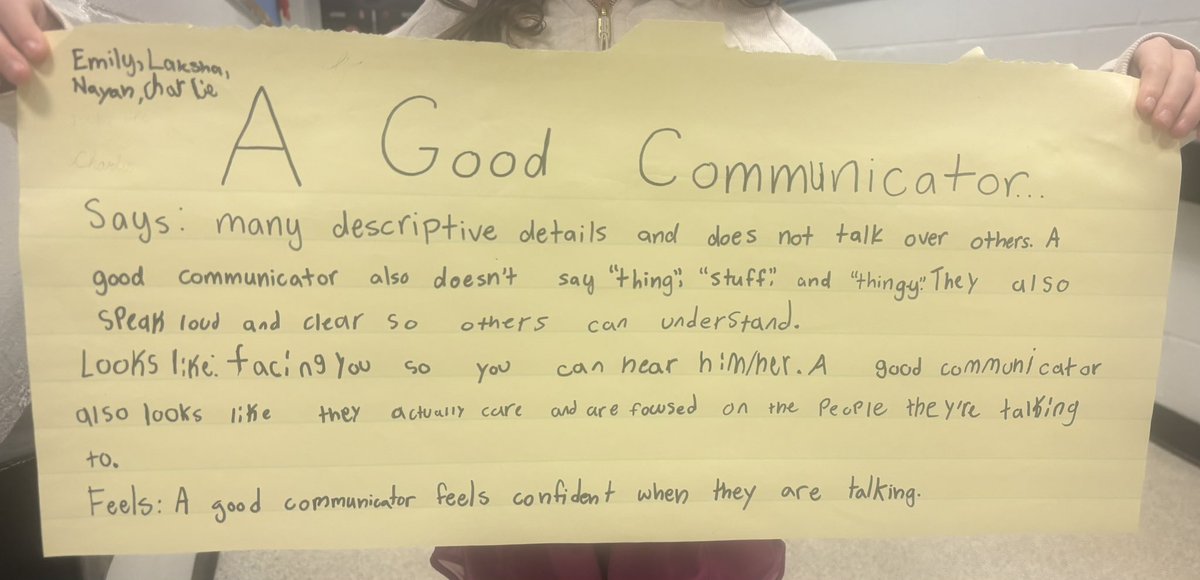 Emily, Laksha,
Nayan, Charlie
A Good Communicator...
Says: many descriptive details and does not talk over others. A
good communicator also doesn't say "thing", "stuff," and "thingy." They also
speak loud and clear so others can understand.
Looks like: facing you so you can hear him/her. A good communicator
also looks like they actually care and are focused on the people they're talking
to.
Feels: A good communicator feels confident when they are talking.